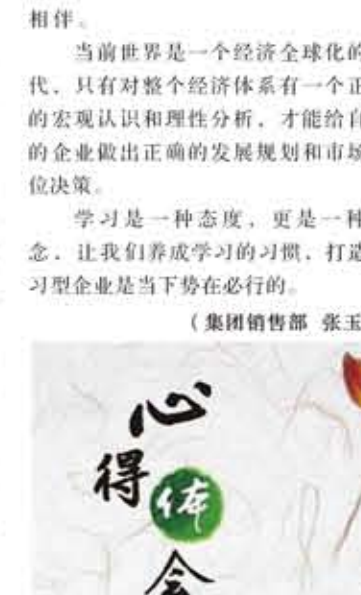 相伴。
当前世界是一个经济全球化的
代，只有对整个经济体系有一个正
的宏观认识和理性分析，才能给自
的企业做出正确的发展规划和市场
位决策。
学习是一种态度，更是一种
念，让我们养成学习的习惯，打造
习型企业是当下势在必行的。
（集团销售部 张玉
心
得
体
会